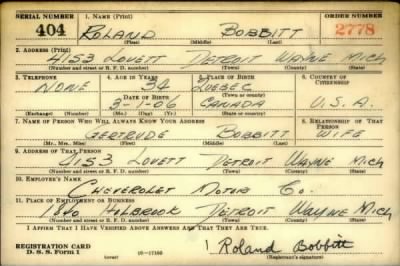 SERIAL NUMBER 1. NAME (Print) ORDER NUMBER
404 ROLAND BOBBITT 2778
(First) (Middle) (Last)
2. ADDRESS (Print)
4153 LOVETT DETROIT WAYNE MICH
(Number and street or R. F. D. number) (Town) (County) (State)
3. TELEPHONE 4. AGE IN YEARS 5. PLACE OF BIRTH 6. COUNTRY OF CITIZENSHIP
NONE 34 QUEBEC
(Town) (County)
DATE OF BIRTH
3-1-06 CANADA U.S.A.
(Exchange) (Number) (Mo.) (Day) (Yr.) (State or country)
7. NAME OF PERSON WHO WILL ALWAYS KNOW YOUR ADDRESS 8. RELATIONSHIP OF THAT PERSON
GERTRUDE BOBBITT WIFE
(Mr., Mrs., Miss) (First) (Middle) (Last)
9. ADDRESS OF THAT PERSON
4153 LOVETT DETROIT WAYNE MICH
(Number and street or R. F. D. number) (Town) (County) (State)
10. EMPLOYER'S NAME
CHEVEROLET MOTOR CO.
11. PLACE OF EMPLOYMENT OR BUSINESS
HOLBROOK DETROIT WAYNE MICH
(Number and street or R. F. D. number) (Town) (County) (State)
I AFFIRM THAT I HAVE VERIFIED ABOVE ANSWERS AND THAT THEY ARE TRUE.
REGISTRATION CARD
D. S. S. Form 1 Roland Bobbitt
(Registrant's signature)